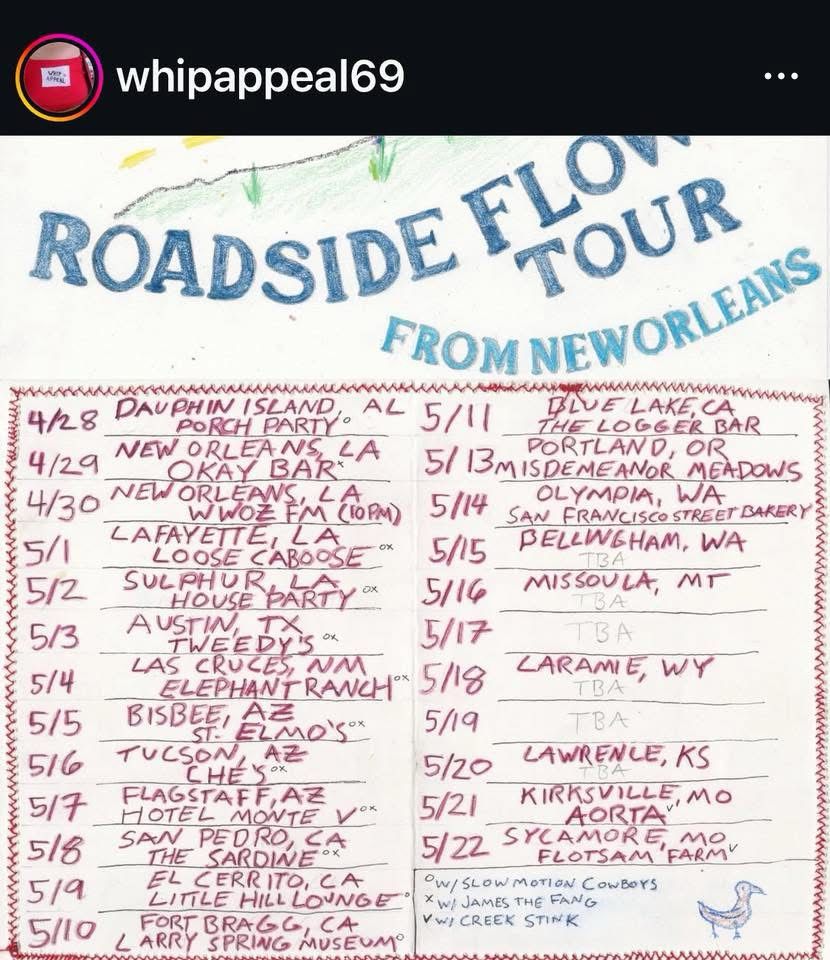 whipappeal69
WHIP APPEAL
ROADSIDE FLOW
TOUR
FROM NEW ORLEANS
4/28 DAUPHIN ISLAND, AL
PORCH PARTY°
4/29 NEW ORLEANS, LA
OKAY BAR ˣ
4/30 NEW ORLEANS, LA
WWOZ FM (10PM)
5/1 LAFAYETTE, LA
LOOSE CABOOSE °ˣ
5/2 SULPHUR, LA
HOUSE PARTY °ˣ
5/3 AUSTIN, TX
TWEEDY'S °ˣ
5/4 LAS CRUCES, NM
ELEPHANT RANCH °ˣ
5/5 BISBEE, AZ
ST. ELMO'S °ˣ
5/6 TUCSON, AZ
CHE'S °ˣ
5/7 FLAGSTAFF, AZ
HOTEL MONTE V °ˣ
5/8 SAN PEDRO, CA
THE SARDINE °ˣ
5/9 EL CERRITO, CA
LITTLE HILL LOUNGE °
5/10 FORT BRAGG, CA
LARRY SPRING MUSEUM°
5/11 BLUE LAKE, CA
THE LOGGER BAR
5/13 PORTLAND, OR
MISDEMEANOR MEADOWS
5/14 OLYMPIA, WA
SAN FRANCISCO STREET BAKERY
5/15 BELLINGHAM, WA
TBA
5/16 MISSOULA, MT
TBA
5/17 TBA
5/18 LARAMIE, WY
TBA
5/19 TBA
5/20 LAWRENCE, KS
TBA
5/21 KIRKSVILLE, MO
AORTA ᵛ
5/22 SYCAMORE, MO
FLOTSAM FARM ᵛ
° W/ SLOW MOTION COWBOYS
ˣ W/ JAMES THE FANG
ᵛ W/ CREEK STINK